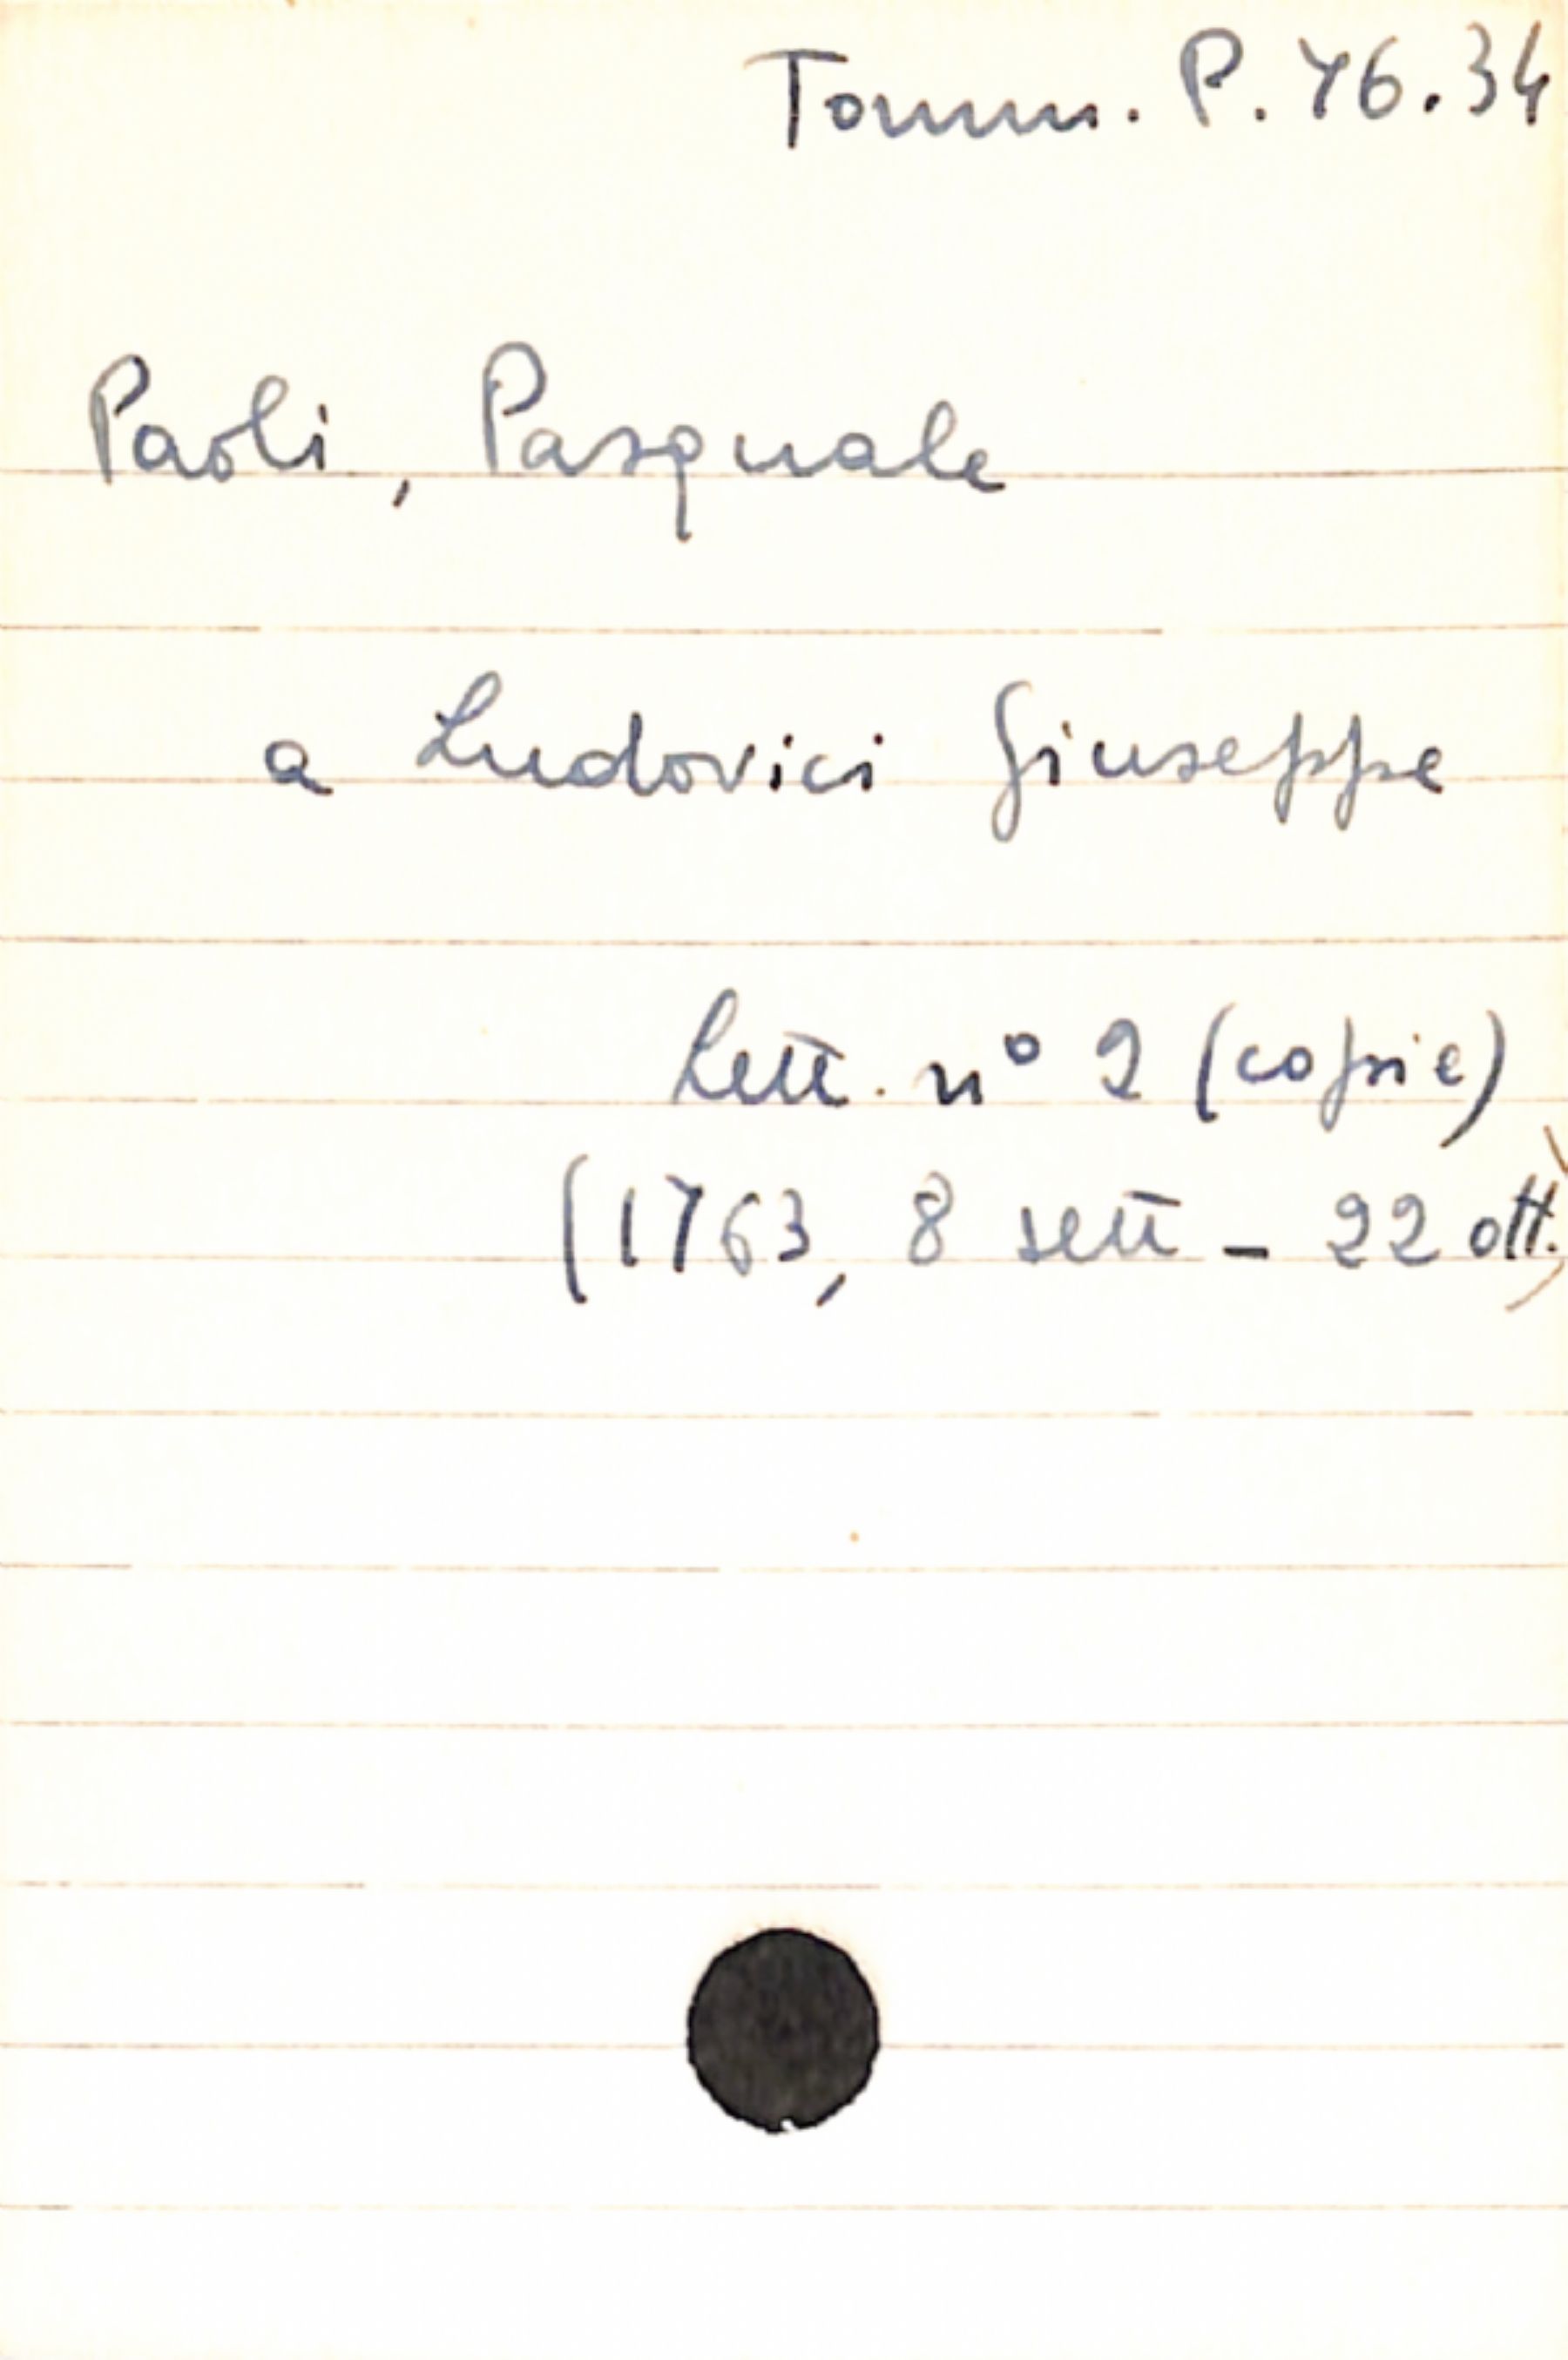 Tomm. P. 76.34
Paoli, Pasquale
a Ludovici Giuseppe
Lett. n° 2 (copie)
(1763, 8 sett - 22 ott.)